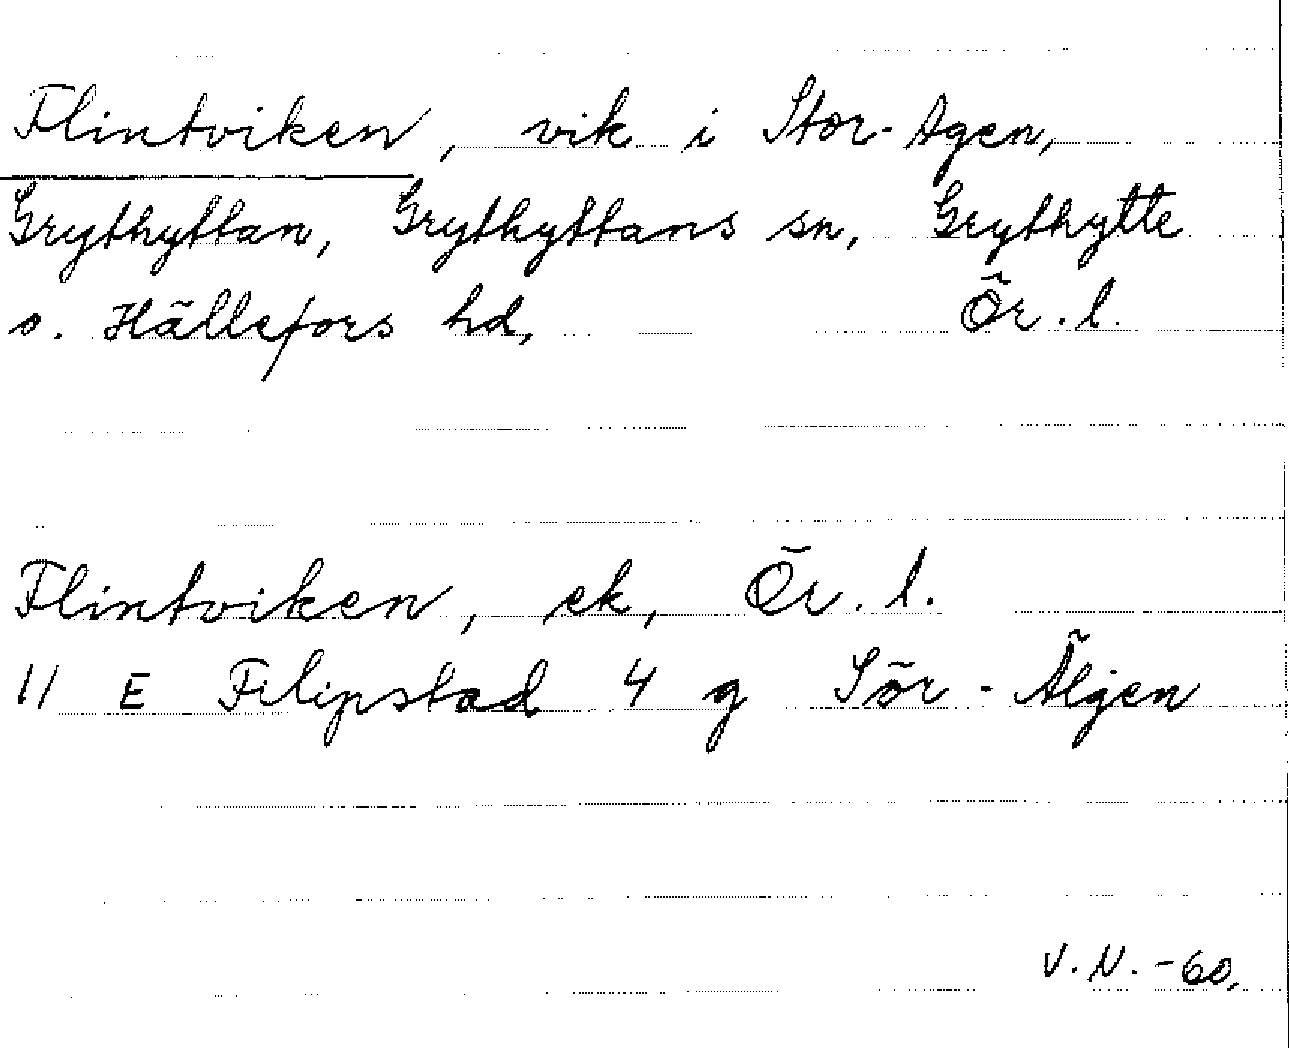 Flintviken, vik i Stor-Agen,
Grythyttan, Grythyttans sn, Grythytte
o. Hällefors hd, Ör. l.
Flintviken, ek, Ör. l.
11 E Filipstad 4 g Sör-Älgen
V.N. -60.